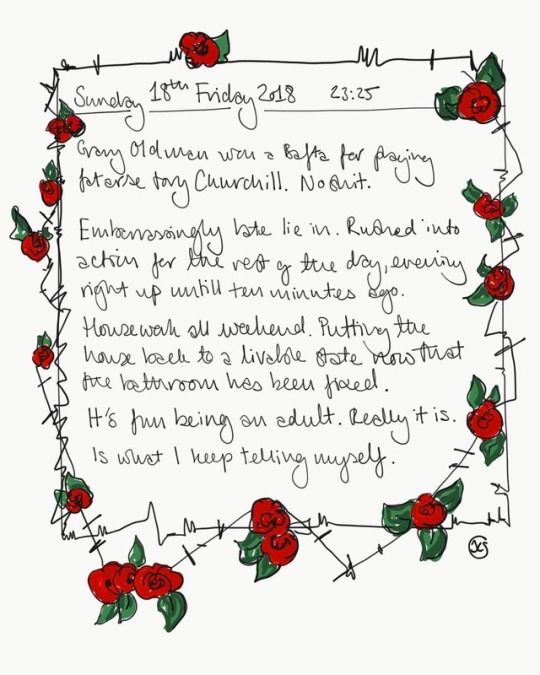 Sunday 18th Friday 2018 23:25
Gary Oldman won a Bafta for playing
fatarse tory Churchill. No shit.
Embarrassingly late lie in. Rushed into
action for the rest of the day, evening
right up untill ten minutes ago.
Housework all weekend. Putting the
house back to a livable state now that
the bathroom has been fixed.
It's fun being an adult. Really it is.
Is what I keep telling myself.